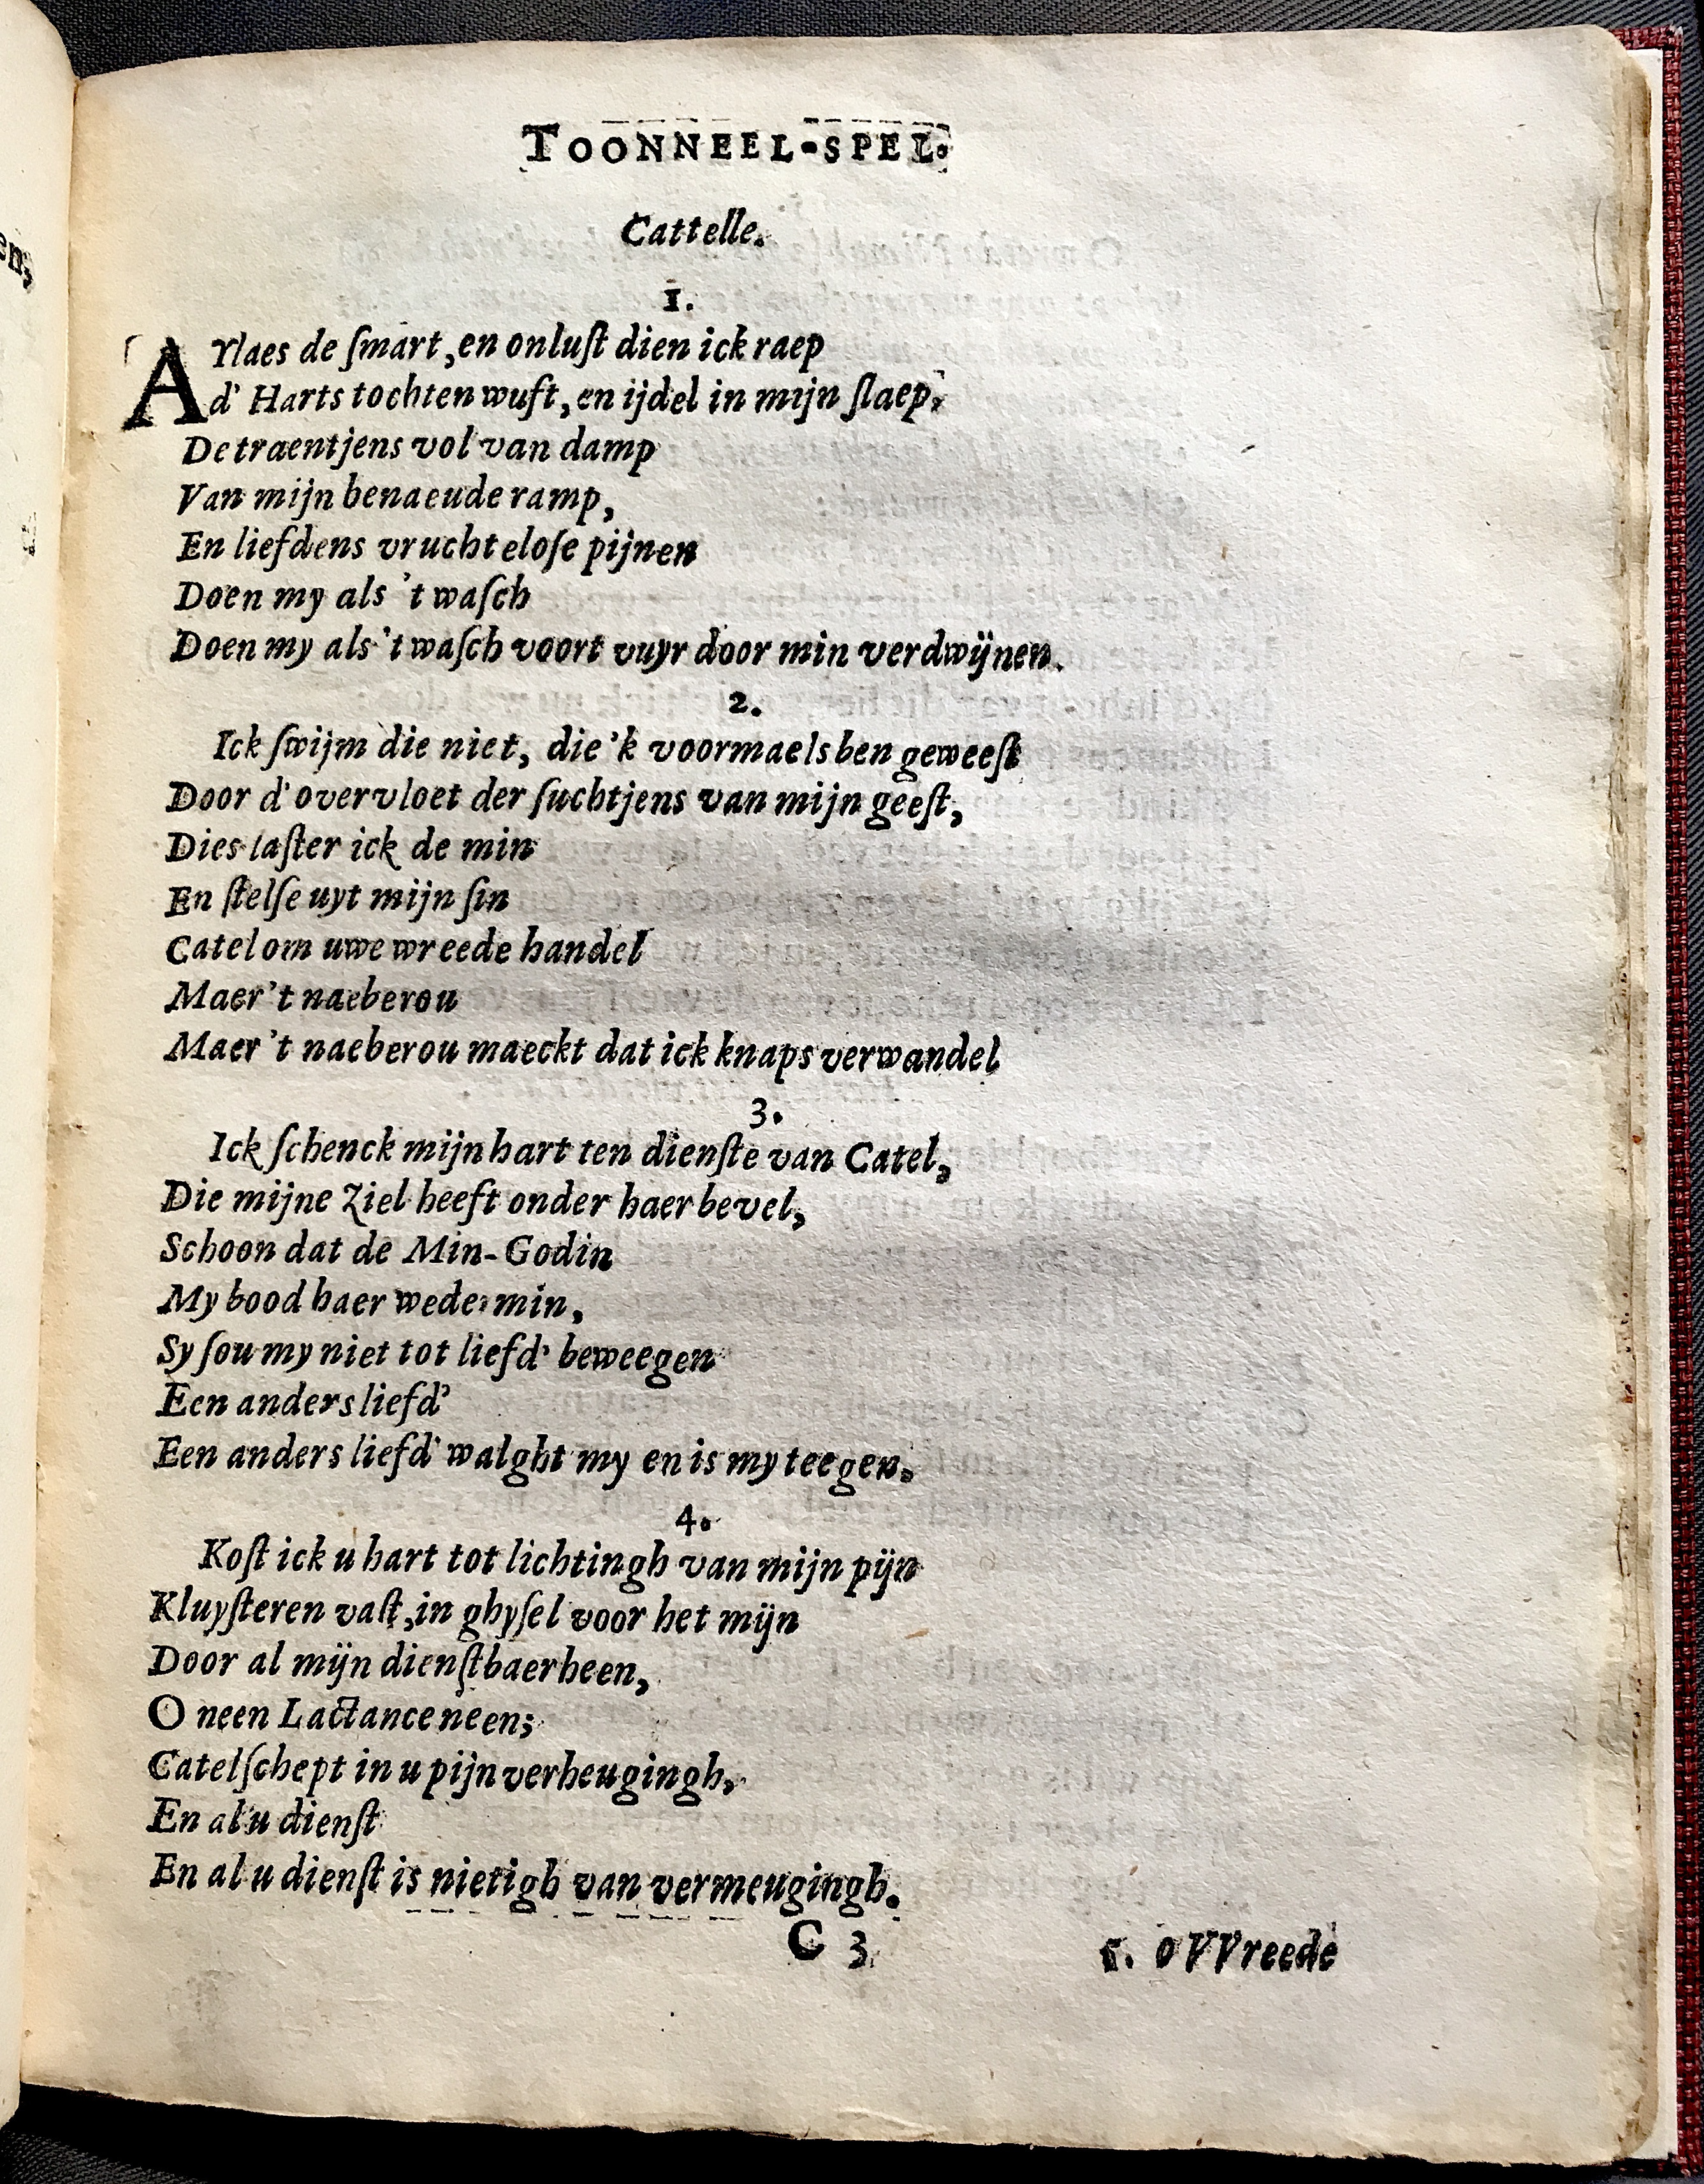 TOONNEEL-SPEL.
Cattelle.
1.
AYlaes de ſmart, en onluſt dien ick raep
d' Harts tochten wuft, en ijdel in mijn ſlaep,
De traentjens vol van damp
Van mijn benaeude ramp,
En liefdens vruchteloſe pijnen
Doen my als 't waſch
Doen my als 't waſch voort vuyr door min verdwijnen.
2.
Ick ſwijm die niet, die 'k voormaels ben geweeſt
Door d'overvloet der ſuchtjens van mijn geeſt,
Dies laſter ick de min
En ſtelſe uyt mijn ſin
Catel om uwe wreede handel
Maer 't naeberou
Maer 't naeberou maeckt dat ick knaps verwandel
3.
Ick ſchenck mijn hart ten dienſte van Catel,
Die mijne Ziel heeft onder haer bevel,
Schoon dat de Min-Godin
My bood haer weder min,
Sy ſou my niet tot liefd' beweegen
Een anders liefd'
Een anders liefd' walght my en is my teegen.
4.
Koſt ick u hart tot lichtingh van mijn pijn
Kluyſteren vaſt, in ghyſel voor het mijn
Door al mijn dienſtbaerheen,
O neen Lactance neen;
Catel ſchept in u pijn verheugingh,
En al u dienſt
En al u dienſt is nietigh van vermeugingh.
C 3 5. o VVreede